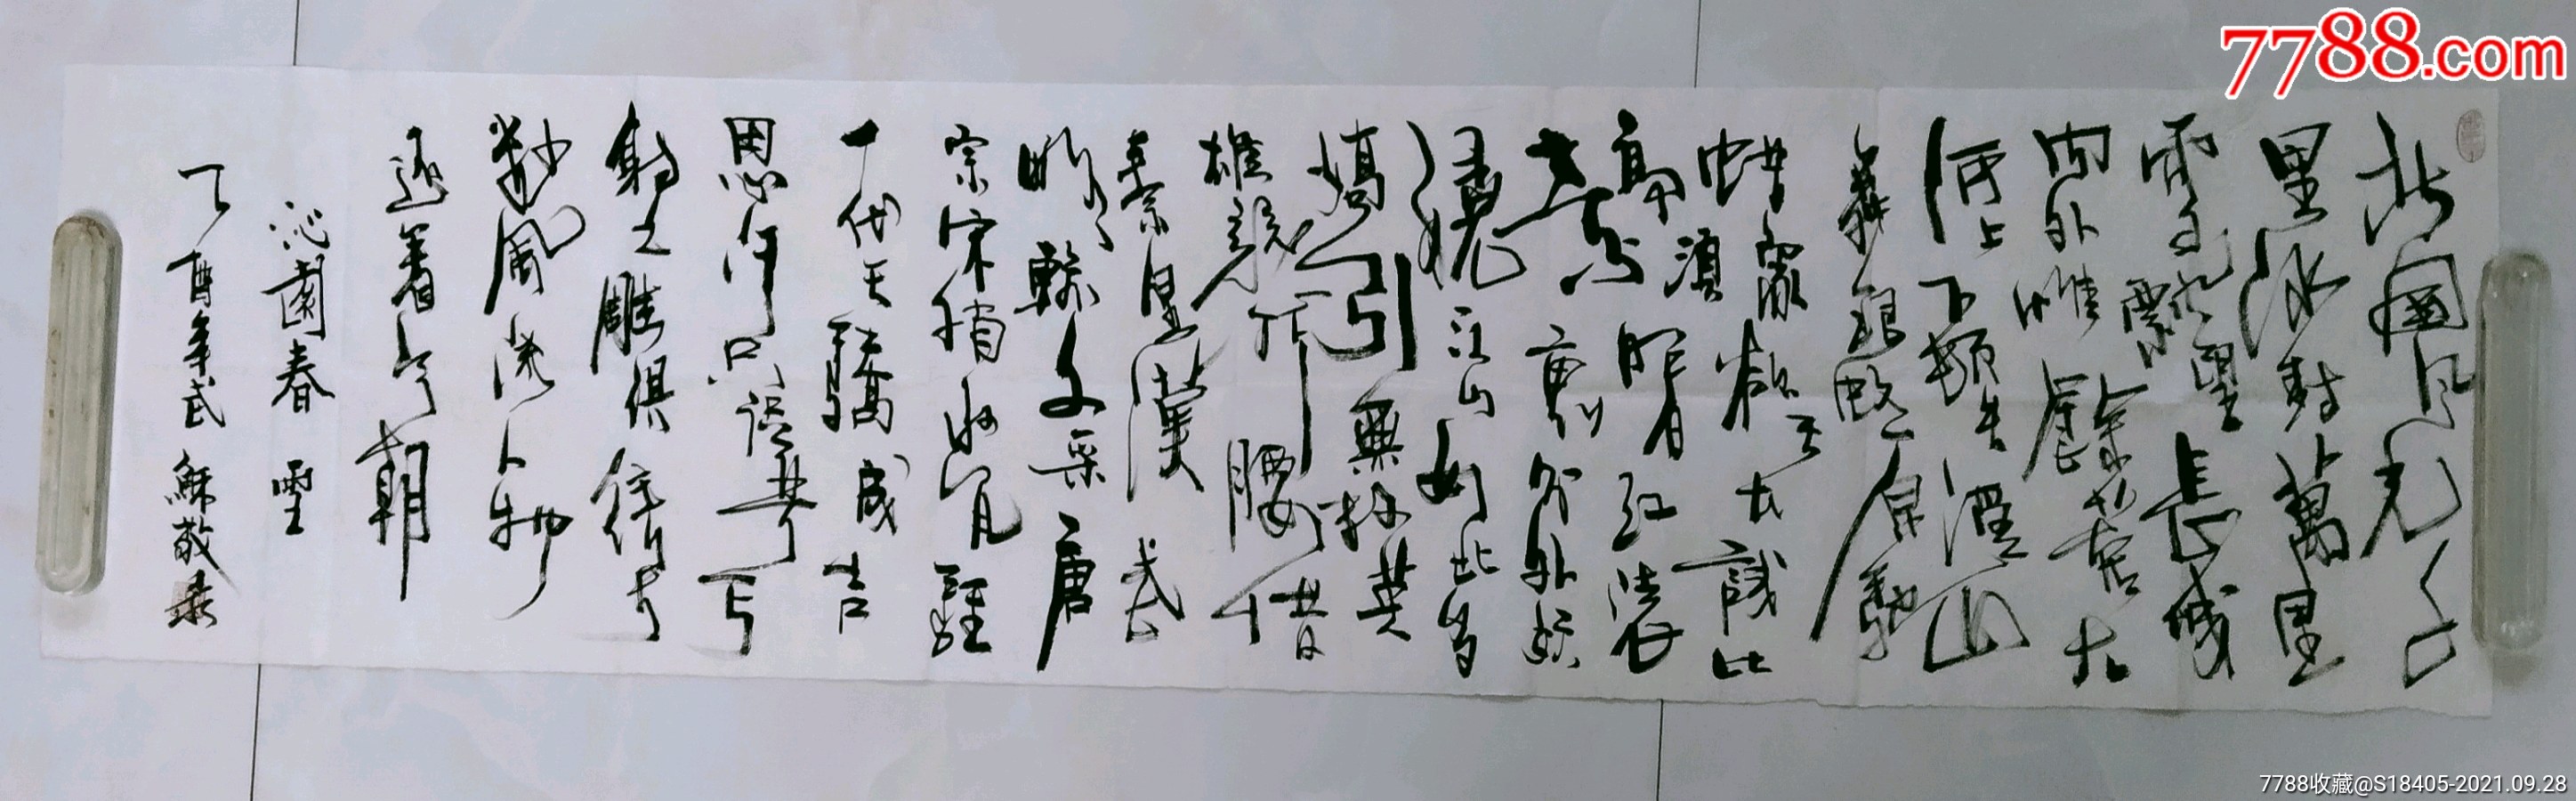 北國風光千
里冰封萬里
雪飄望長城
内外惟餘莽大
河上下頓失滔山
舞銀蛇原馳
蜡象欲天公試比
高須晴日看红裝
素裹分外妖
嬈江山如此多
嬌引無數英
雄競折腰惜
秦皇漢武
略輸文采唐
宗宋稍遜風騷
一代天驕成吉
思汗只識彎弓
射大雕俱往矣
數風流人物
還看今朝
沁園春 雪
丁酉年武 穌敬录
7788.com
7788收藏@S18405-2021.09.28